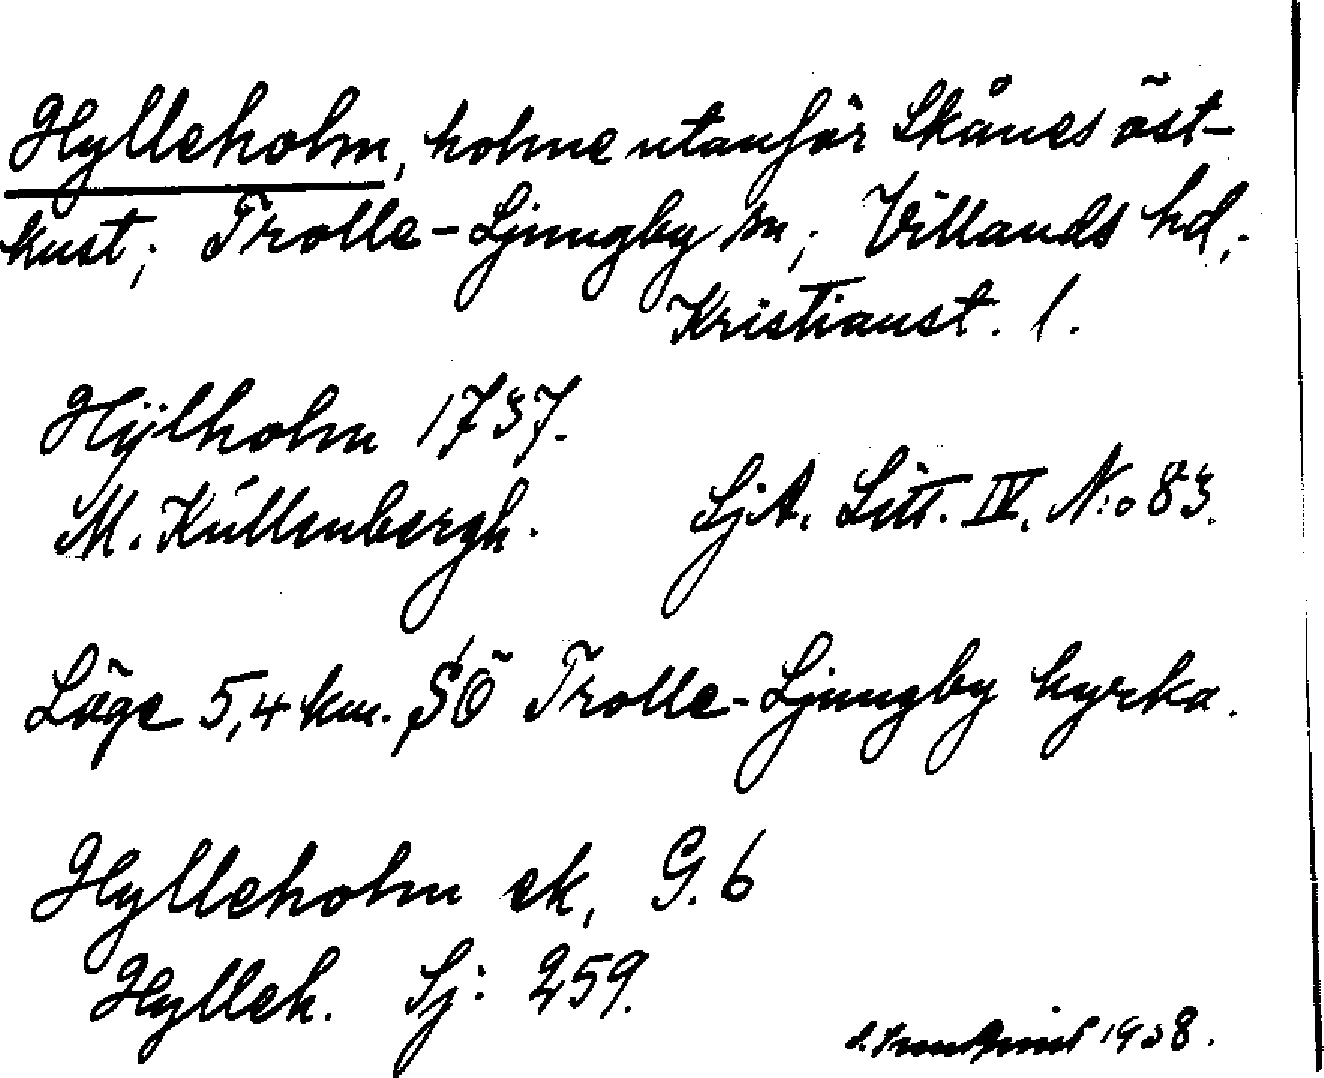 Hylleholm, holme utanför Skånes öst-
kust; Trolle-Ljungby sn; Villands hd;
Kristianst. l.
Hÿlholm 1737.
M. Kúllenbergh. SjA. Litt. IV. N:o 83.
Läge 5,4 km. SÖ Trolle-Ljungby kyrka.
Hylleholm ek, G. 6
Hylleh. Sj: 259.
1938.